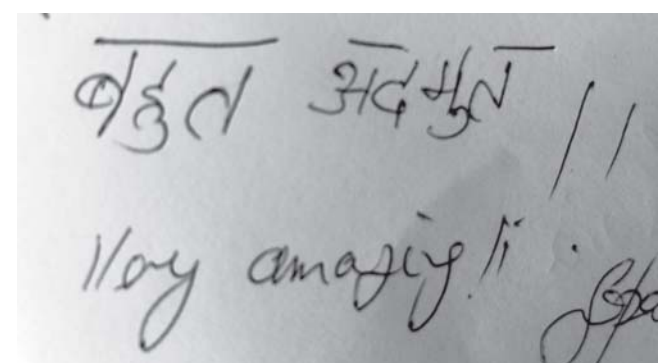 बहुत अदभुत ||
Very amazing !!